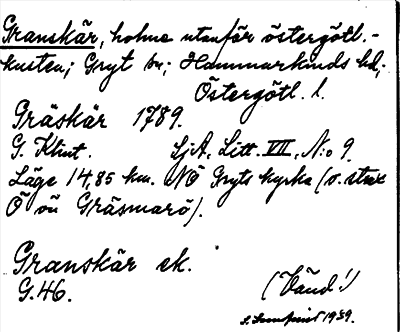 Granskär, holme utanför östergötl.-
kusten; Gryt sn; Hammarkinds hd;
Östergötl. l.
Gräskär 1789.
G. Klint. SjA, Litt. VII, N:o 9.
Läge 14,85 km. NÖ Gryts kyrka (o. strax
Ö om Gräsmarö).
Granskär ek.
G.46.
(Vänd!)
1939.